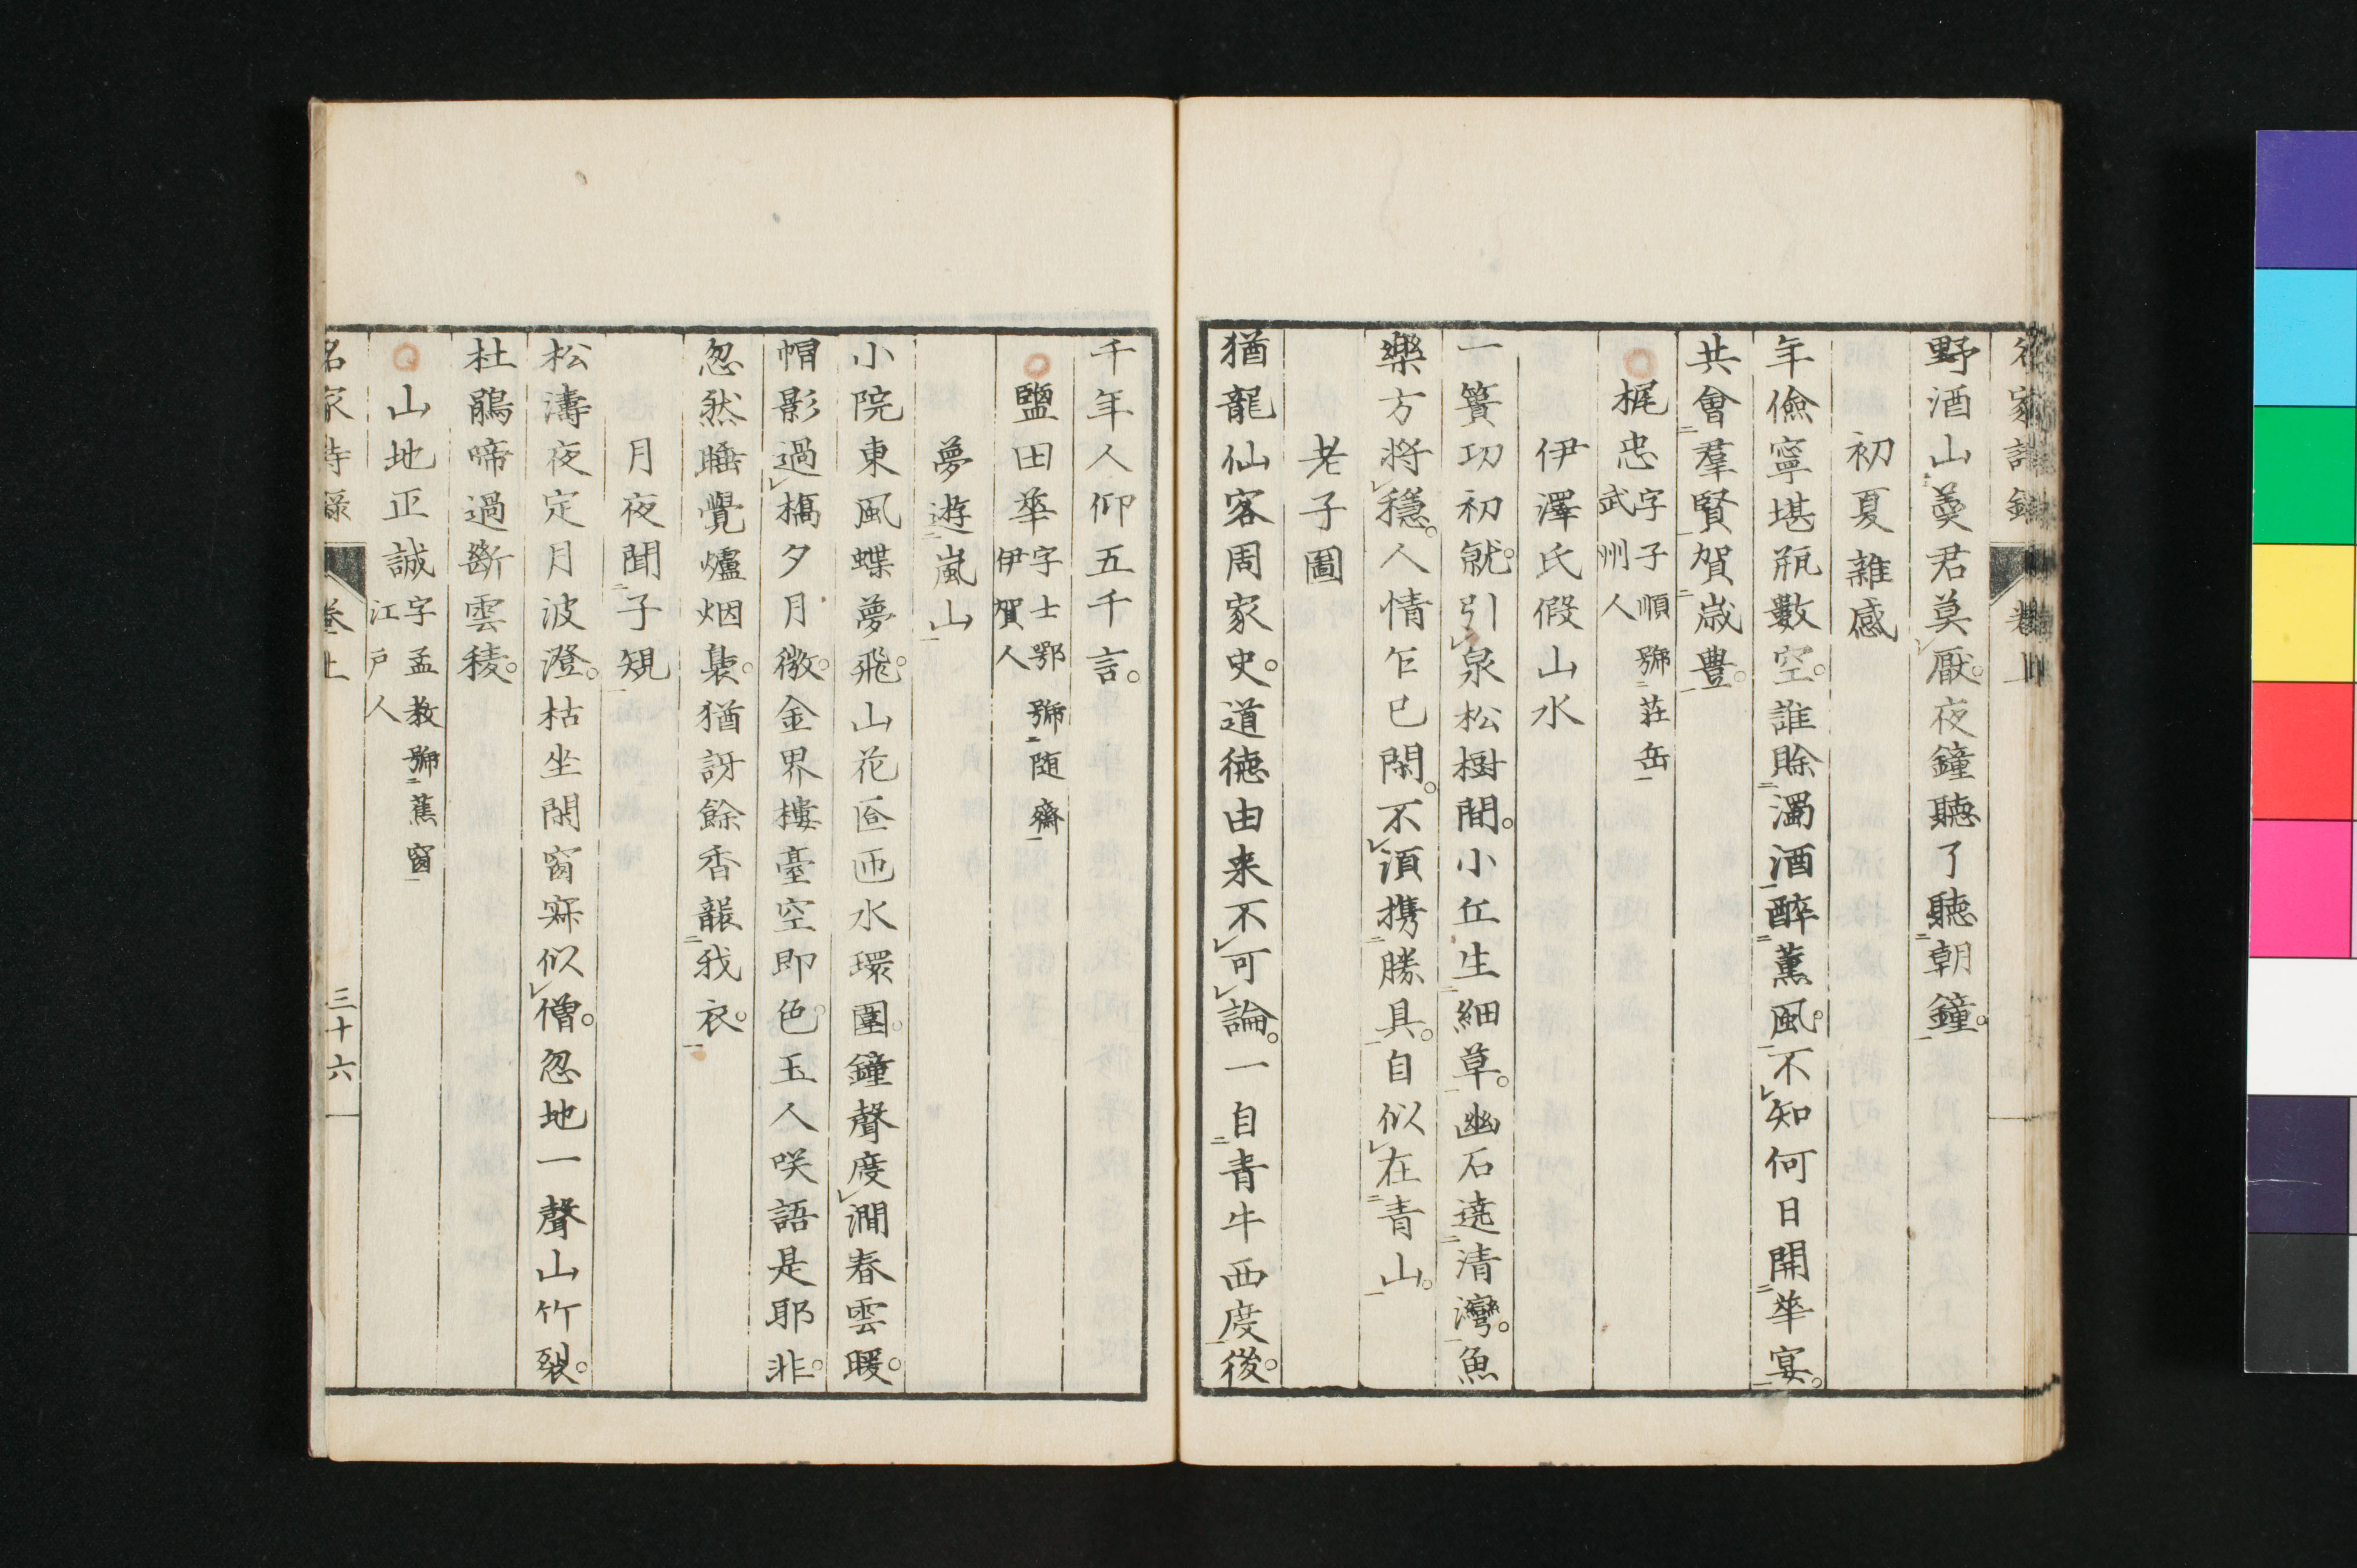 野酒山羮君莫厭。夜鐘聽了聽朝鐘。
初夏雜感
年儉寧堪瓶數空。誰賒濁酒醉薫風。不知何日開華宴。
共會羣賢賀歳豊。
梶忠字子順號荘岳武州人
伊澤氏假山水
一簣功初就。引泉松樹間。小丘生細草。幽石遶清灣。魚
樂方將穩。人情乍已閑。不須携勝具。自似在青山。
老子圖
猶龍仙客周家史。道徳由来不可論。一自青牛西度後。
千年人仰五千言。
鹽田華字士鄂號随齋伊賀人
夢遊嵐山
小院東風蝶夢飛。山花匼匝水環圍。鐘聲度澗春雲暖。
帽影過橋夕月微。金界樓臺空即色。玉人咲語是耶非。
忽然睡覺爐烟裊。猶訝餘香襲我衣。
月夜聞子規
松濤夜定月波澄。枯坐閑窗寂似僧。忽地一聲山竹裂。
杜鵑啼過斷雲稜。
山地正誠字孟教號蕉窗江戸人
名家詩録 巻上 三十六